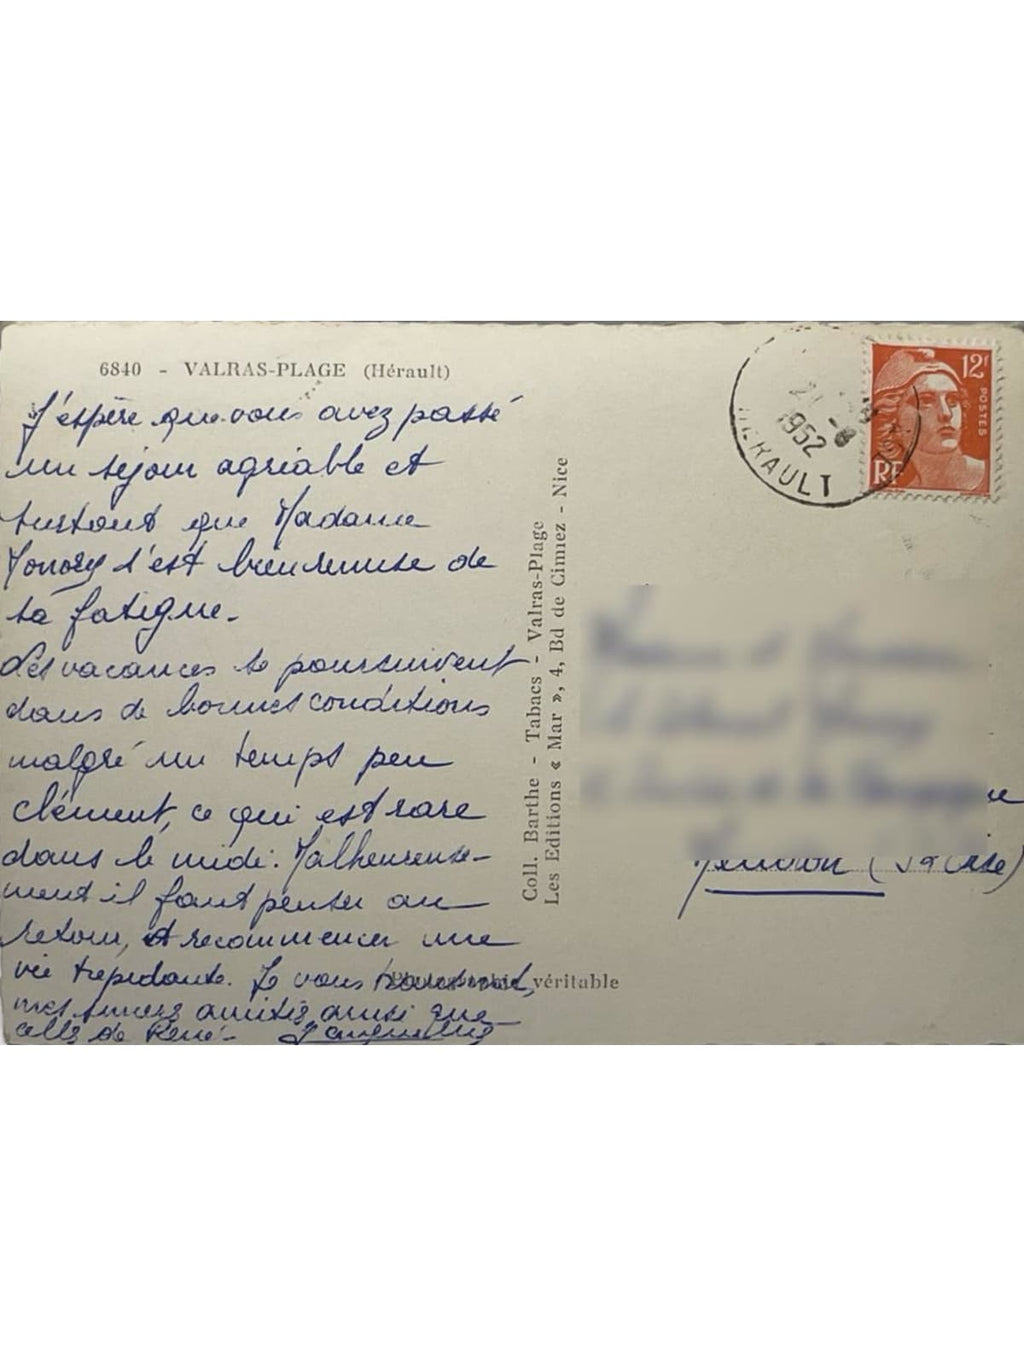 6840 - VALRAS-PLAGE (Hérault)
J'espère que vous avez passé
un séjour agréable et
surtout que Madame
s'est bien remise de
sa fatigue.
Les vacances se poursuivent
dans de bonnes conditions
malgré un temps peu
clément, ce qui est rare
dans le midi. Malheureuse-
ment il faut penser au
retour, et recommencer une
vie trépidante. Je vous transmet,
mes sincères amitiés ainsi que
celles de René. Jacqueline
Coll. Barthe - Tabacs - Valras-Plage
Les Editions « Mar », 4, Bd de Cimiez - Nice
véritable
12f
POSTES
RF
1952
HERAULT
(S et Oise)